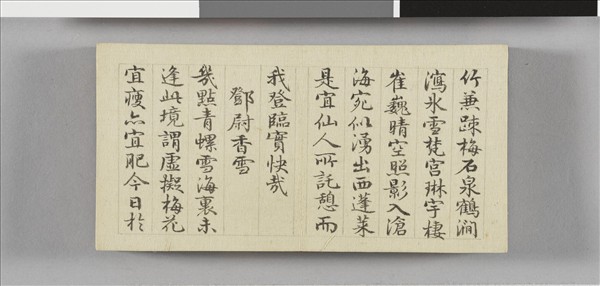 竹兼踈梅石泉鶴澗
瀉氷雪梵宮琳宇棲
崔巍晴空照影入滄
海宛似湧出西蓬萊
是宜仙人所託憩而
我登臨實快哉
鄧尉香雪
幾點青螺雪海裏未
逢此境謂虛擬梅花
宜瘦亦宜肥今日於